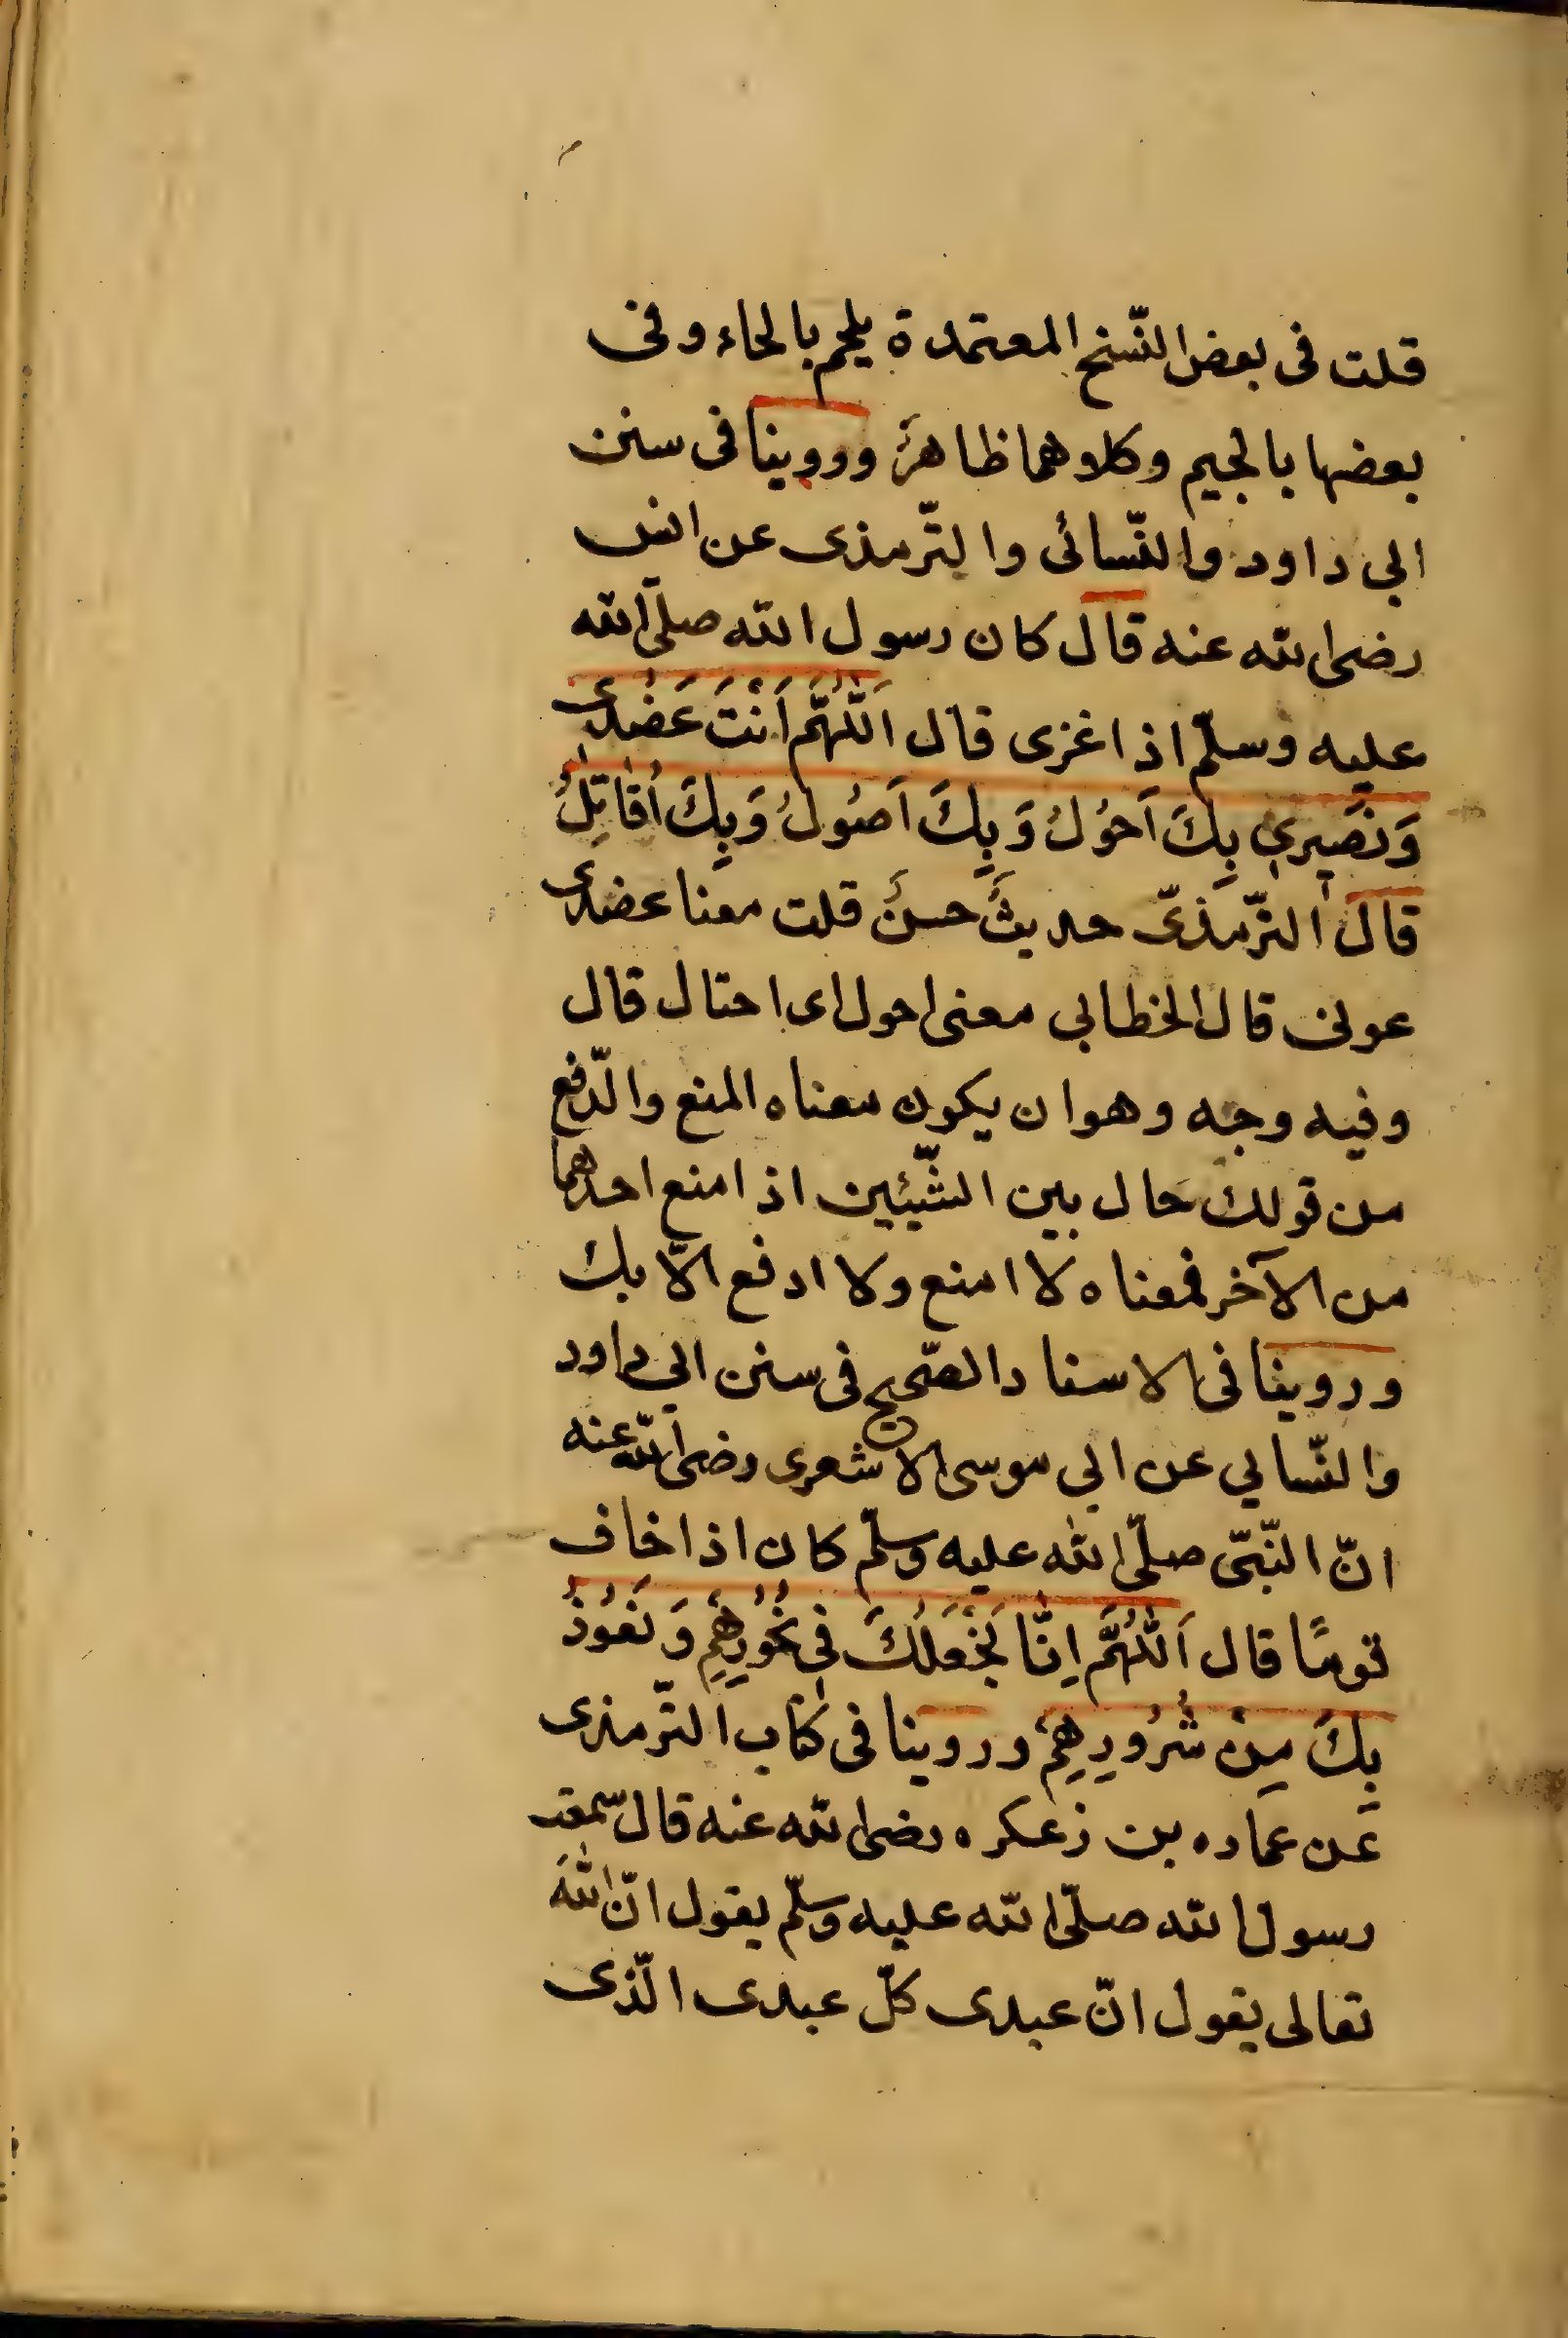 قلت فى بعض النّسخ المعتمدة يلحم بالحاء وفى
بعضها بالجيم وكلاهما ظاهرٌ وروينا فى سنن
ابى داود والنّسائى والتّرمذى عن انس
رضى الله عنه قال كان رسول الله صلّى الله
عليه وسلّم اذا غزى قال اَللّٰهُمَّ اَنْتَ عَضُدِى
وَنَصِيرِي بِكَ اَحُوْلُ وَبِكَ اَصُولُ وَبِكَ اُقَاتِلُ
قال التّرمذىّ حديثٌ حسنٌ قلت معنا عضدى
عونى قال الخطابى معنى احول اى احتال قال
وفيه وجه وهو ان يكون معناه المنع والدّفع
من قولك حال بين الشّيئين اذا منع احدهما
من الآخر فمعناه لا امنع ولا ادفع الّا بك
وروينا فى الاسناد الصّحيح فى سنن ابى داود
والنّسايي عن ابي موسى الاشعرى رضى الله عنه
انّ النّبىّ صلّى الله عليه وسلّم كان اذا خاف
قومًا قال اَللّٰهُمَّ اِنَّا نَجْعَلُكَ فِى نُحُوْرِهِمْ وَنَعُوْذُ
بِكَ مِنْ شُرُوْرِهِمْ وروينا فى كتاب التّرمذى
عَن عماره بن زعكره رضى الله عنه قال سمعت
رسول الله صلّى الله عليه وسلّم يقول انّ اللهَ
تعالى يقول انّ عبدى كلّ عبدى الّذى